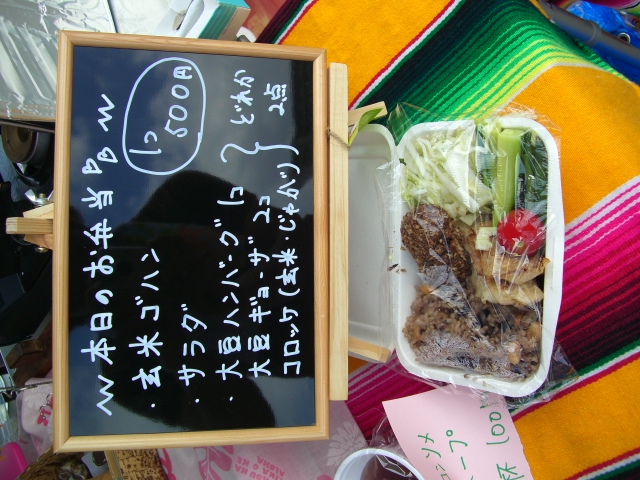 本日のお弁当
1コ 500円
・玄米ゴハン
・サラダ
・大豆ハンバーグ 1コ
大豆ギョーザ 2コ
コロッケ(玄米・じゃがバ)
どれか
2点
ンソメ
ープ
杯 100